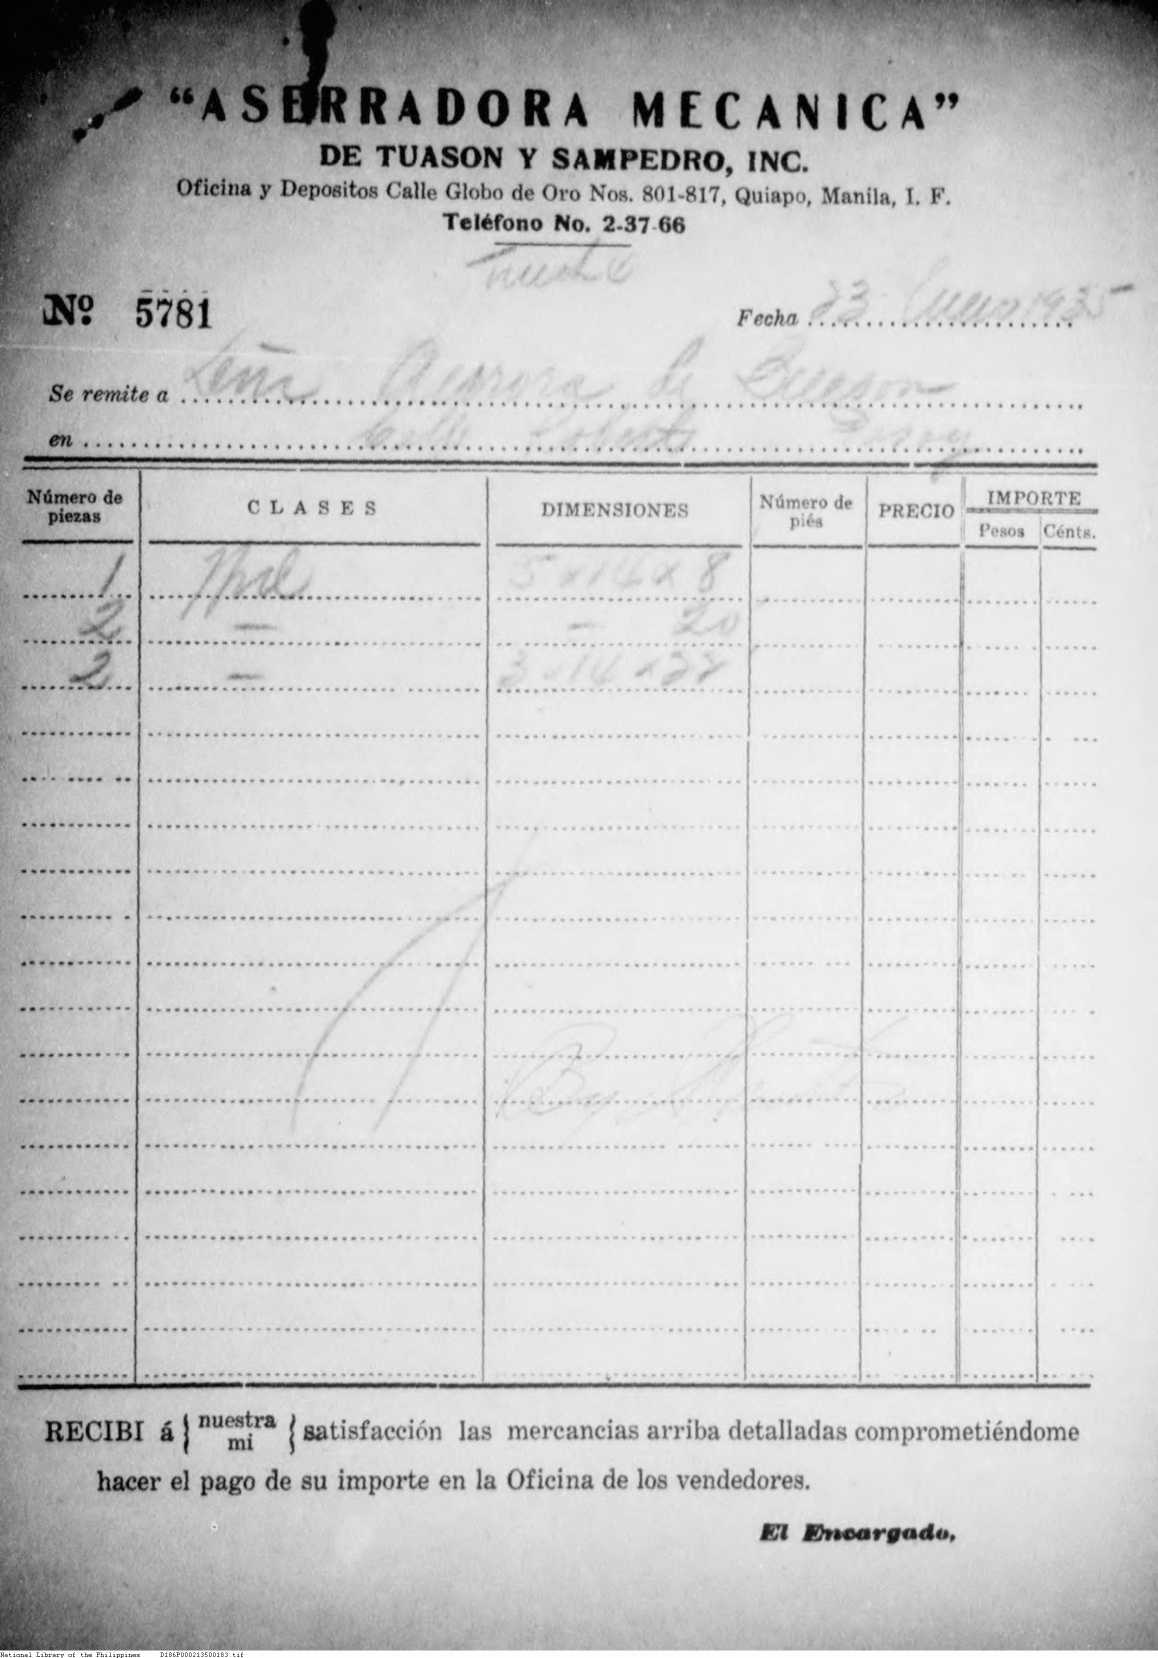 "ASERRADORA MECANICA"
DE TUASON Y SAMPEDRO, INC.
Oficina y Depositos Calle Globo de Oro Nos. 801-817, Quiapo, Manila, I. F.
Teléfono No. 2-37-66
Nº 5781
Fecha 23 Enero 1935
Se remite a Aurora de Quezon
en Calle Roberts Pasay
Número de piezas CLASES DIMENSIONES Número de piés PRECIO IMPORTE
Pesos Cénts.
1 5 x 14 x 8
2 — — 20
2 — 3 x 14 x 22
By
RECIBI á { nuestra mi { satisfacción las mercancias arriba detalladas comprometiéndome
hacer el pago de su importe en la Oficina de los vendedores.
El Encargado,
National Library of the Philippines D186P000213500183.tif